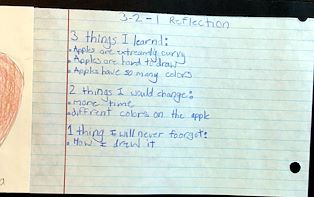 3-2-1 Reflection
3 things I learnd:
• Apples are extreamly curvy
• Apples are hard to draw
• Apples have so many colors
2 things I would change:
• more time
• different colors on the apple
1 thing I will never foorgot:
• How I drew it